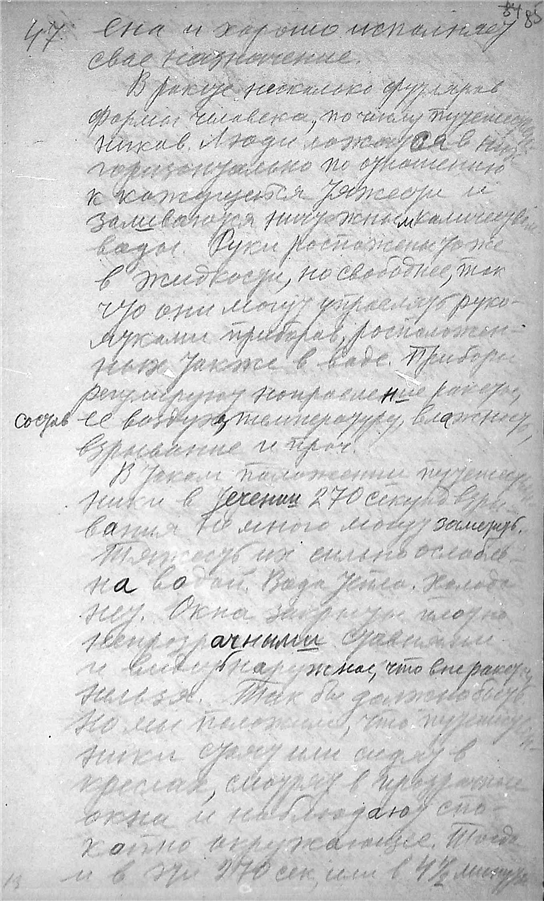 84 85
47. Ена и хорошо исполняет
свое назначение.
В ракете несколько футляров
формы человека, по числу путешест
ников. Люди ложатся в них
горизонтально по отношению
к кажущейся тяжести и
заливаются ничтожным количеством
воды. Руки расположены тоже
в жидкости, но свободнее, так
что они могут управлять руко-
ятками приборов, расположен-
ных также в воде. Приборы
регулируют направление ракеты,
состав ее воздуха, температуру, влажность,
взрывание и проч.
В таком положении путешест
ники в течении 270 секунд взры
вания не много могут заметить.
Тяжесть их сильно ослабле-
на водой. Вода тепла. Холода
нет. Окна закрыты плотно
непрозрачными ставнями
и видеть наружное, что вне ракеты,
нельзя. Так бы должно быть
Но мы положим, что путешест
ники стоят или сидят в
креслах, смотрят в прозрачные
окна и наблюдают спо-
койно окружающее. Тогда
и в эти 270 сек, или в 4½ минуты